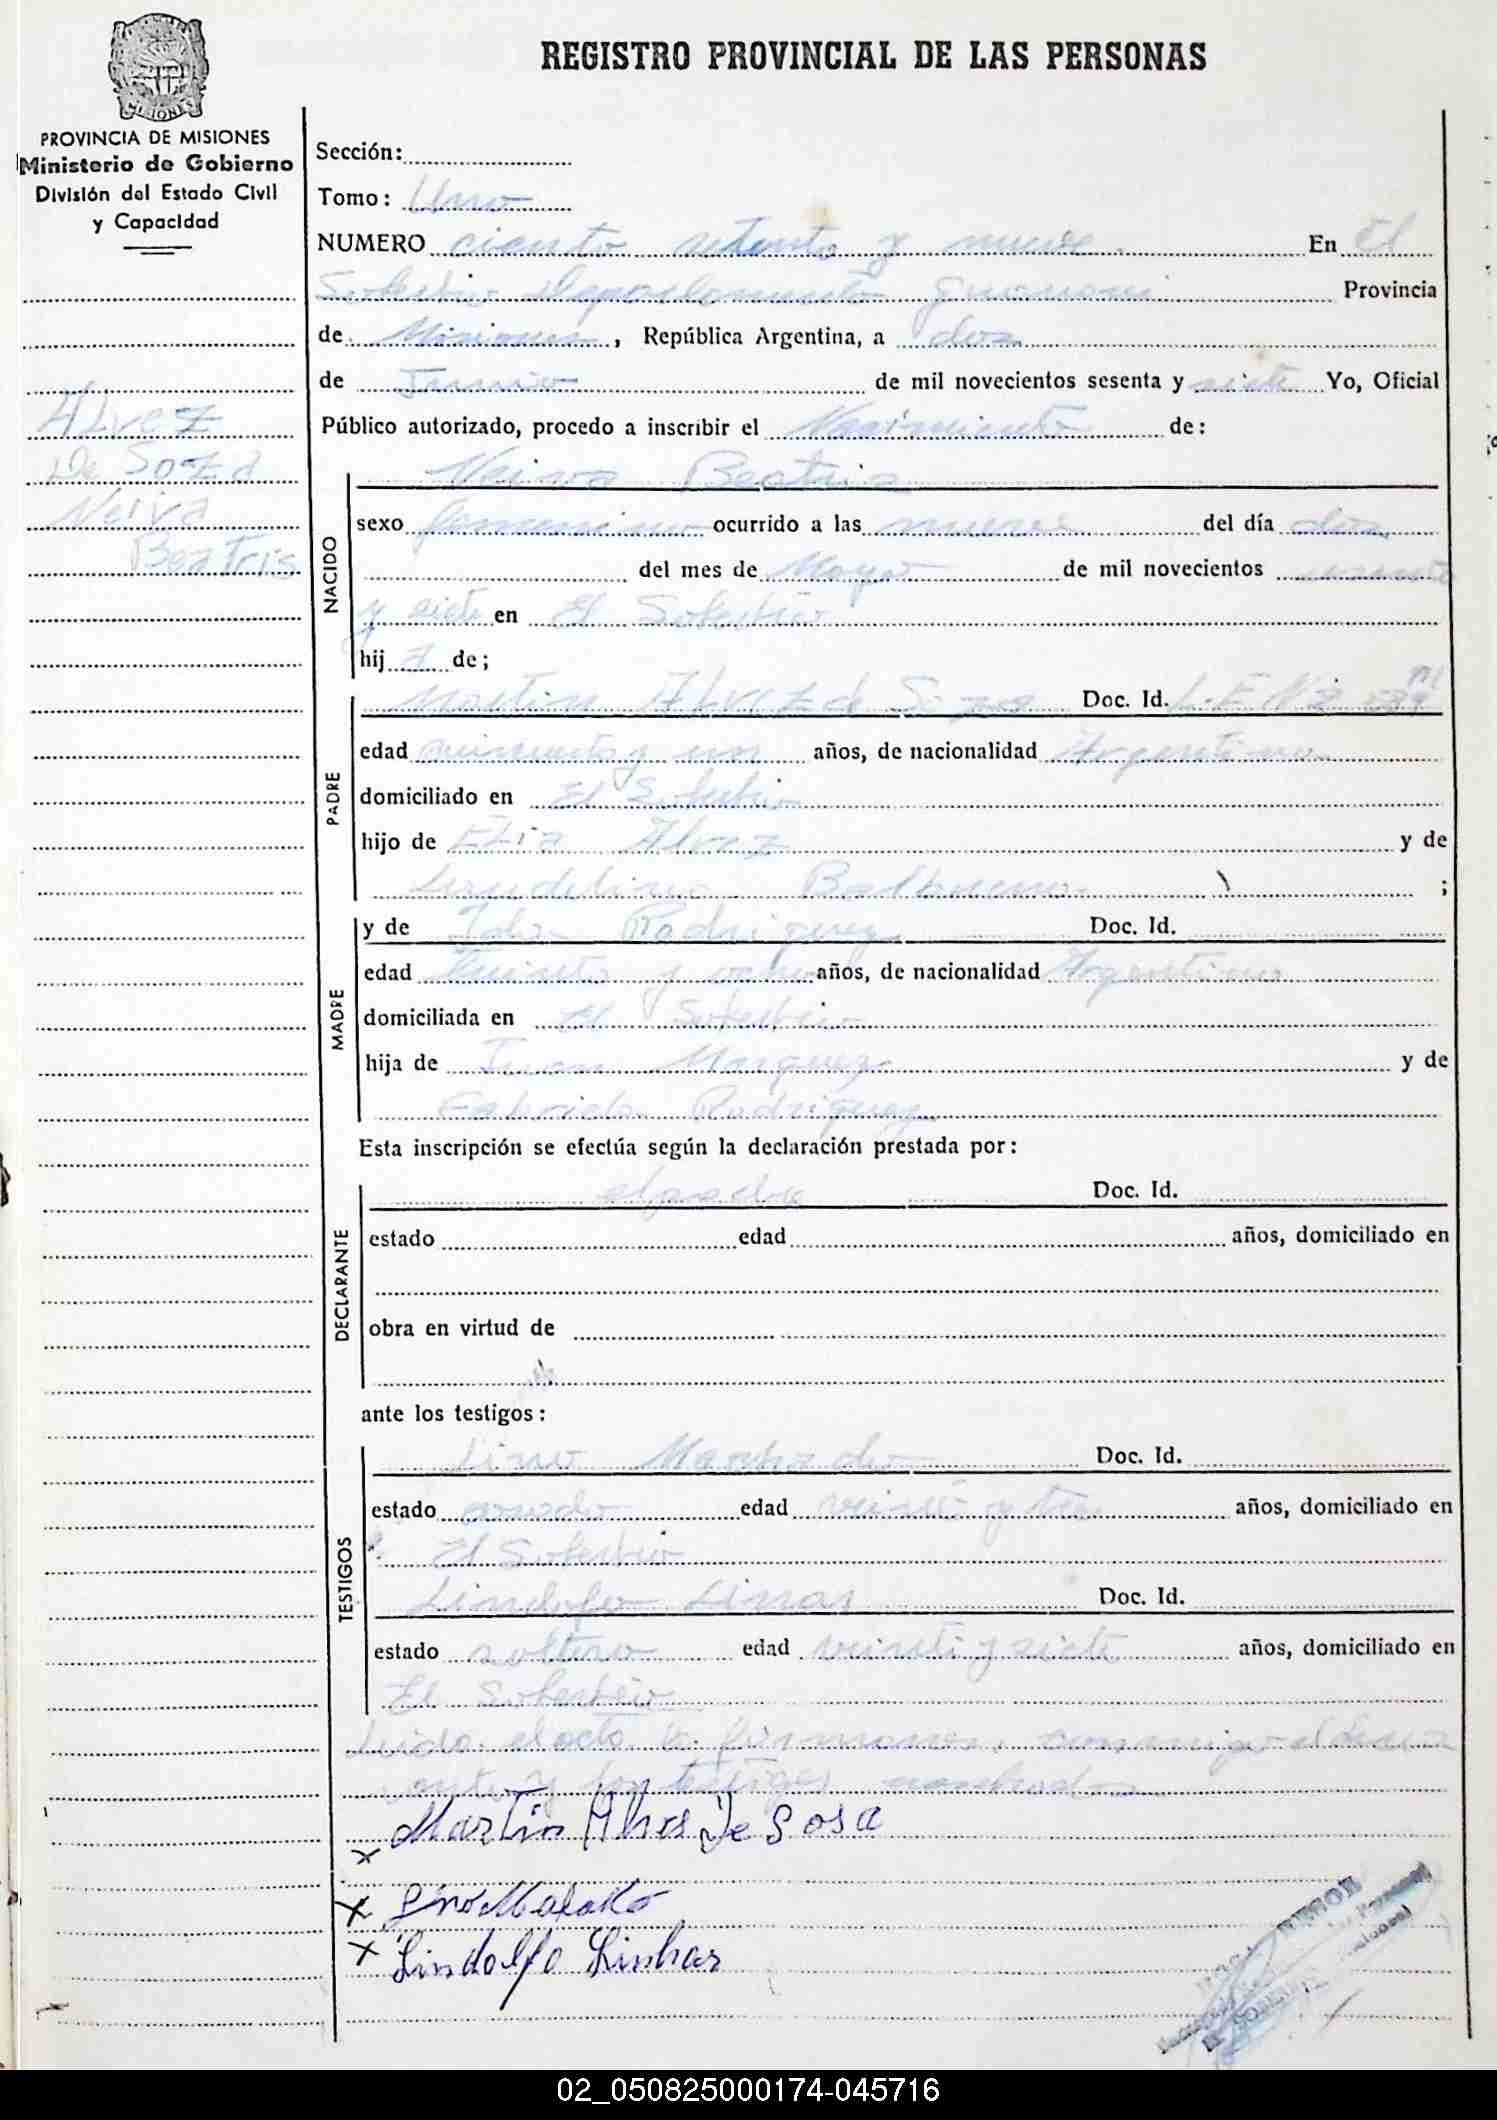 REGISTRO PROVINCIAL DE LAS PERSONAS
MISIONES
PROVINCIA DE MISIONES
Ministerio de Gobierno
División del Estado Civil
y Capacidad
Alvez
De Soza
Neiva
Beatris
Sección:
Tomo: Uno
NUMERO ciento setenta y nueve. En El
Soberbio Departamento Guarani Provincia
de Misiones, República Argentina, a dos
de Junio de mil novecientos sesenta y siete Yo, Oficial
Público autorizado, procedo a inscribir el Nacimiento de:
Neiva Beatris
NACIDO
sexo femenino ocurrido a las nueve del día dos
del mes de Mayo de mil novecientos sesenta
y siete en El Soberbio
hij a de;
PADRE
Martin Alvez de Soza Doc. Id. L.E. Nº
edad y uno años, de nacionalidad Argentino
domiciliado en El Soberbio
hijo de Elia Alvez y de
Balbuena ;
MADRE
y de Rodriguez Doc. Id.
edad y ocho años, de nacionalidad Argentina
domiciliada en El Soberbio
hija de Juan Marquez y de
Gabriela Rodriguez
Esta inscripción se efectúa según la declaración prestada por:
DECLARANTE
el padre Doc. Id.
estado edad años, domiciliado en
obra en virtud de
ante los testigos:
TESTIGOS
Lino Machado Doc. Id.
estado edad veinti y tres años, domiciliado en
El Soberbio
Lindolfo Linar Doc. Id.
estado soltero edad veinti y siete años, domiciliado en
El Soberbio
Leida el acta la firmaron conmigo el decla
rante y los testigos nombrados
Martin Alves De Sosa
x
x Lino
x Lindolfo Linhar
02_050825000174-045716